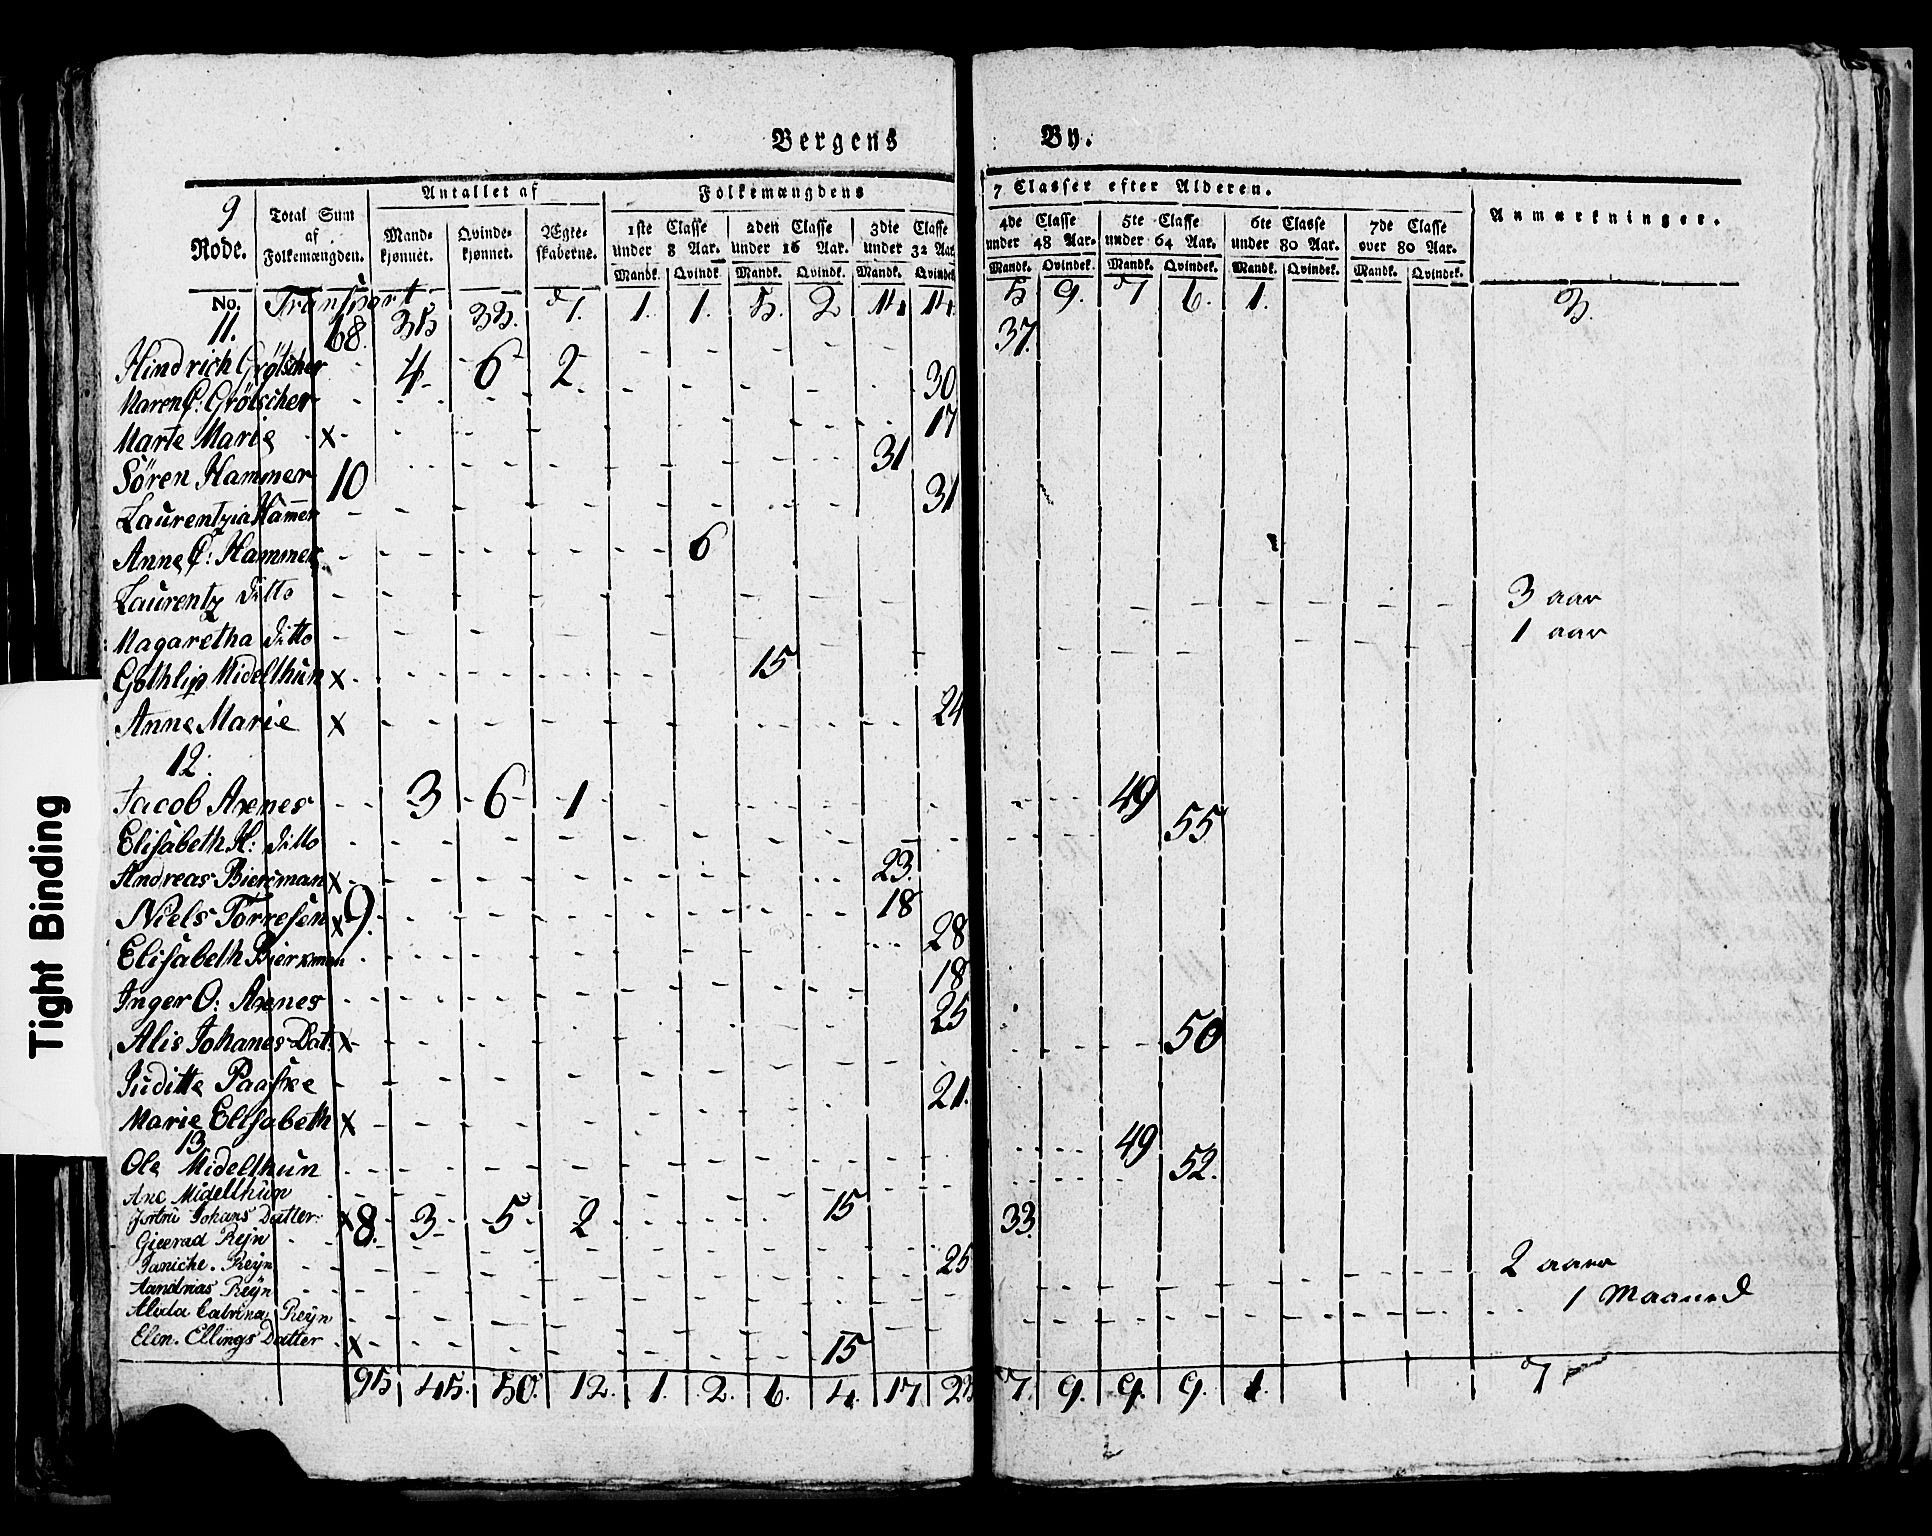 Bergens By.
9 Rode.
Total Sum af Folkemængden.
Antallet af
Mand- kjønnet. Qvinde- kjønnet. Ægte- skaberne.
Folkemængdens 7 Classer efter Alderen.
1ste Classe under 8 Aar. 2den Classe under 16 Aar. 3die Classe under 32 Aar. 4de Classe under 48 Aar. 5te Classe under 64 Aar. 6te Classe under 80 Aar. 7de Classe over 80 Aar.
Mandk. Qvindk. Mandk. Qvindk. Mandk. Qvindek. Mandk. Qvindek. Mandk. Qvindek. Mandk. Qvindek. Mandk. Qvindek.
Anmærkninger.
No. Transport 68. 35 33. 7. 1. 1. 5. 2 14 14 5 9. 7 6. 1. 3.
11.
Hindrich Grötscher 4 6 2 37.
Maren C: Grötscher 30
Marte Marie x 17
Sören Hammer 10 31
Laurentzia Hammer 31
Anne C: Hammer 6
Laurentz Ditto 3 aar
Magaretha Ditto 1 aar
Gothlip Midelthun x 15
Anne Marie x 24
12.
Jacob Axenes 3 6 1 49
Elisabeth H: Ditto 55
Andreas Bierxman x 23.
Niels Torresen x 9. 18
Elisabeth Bierxman 28
Inger O: Axenes 18
Alis Johanes Dat. x 25
Juditte Paaske 50
Marie Elisabeth x 21.
13
Ole Midelthun 49
Ane Midelthun 52.
Johans Datter x 8. 3 5 2 15
Gierrad Rejn 33.
Janiche. Rejn 25
Aandrias Rejn 2 aar
Alida Catrina Rejn 1 Maaned
Elen. Ellings Datter x 15
95 45. 50. 12. 1. 2. 6. 4. 17 23 7. 9. 9. 9. 1. 7
Tight Binding